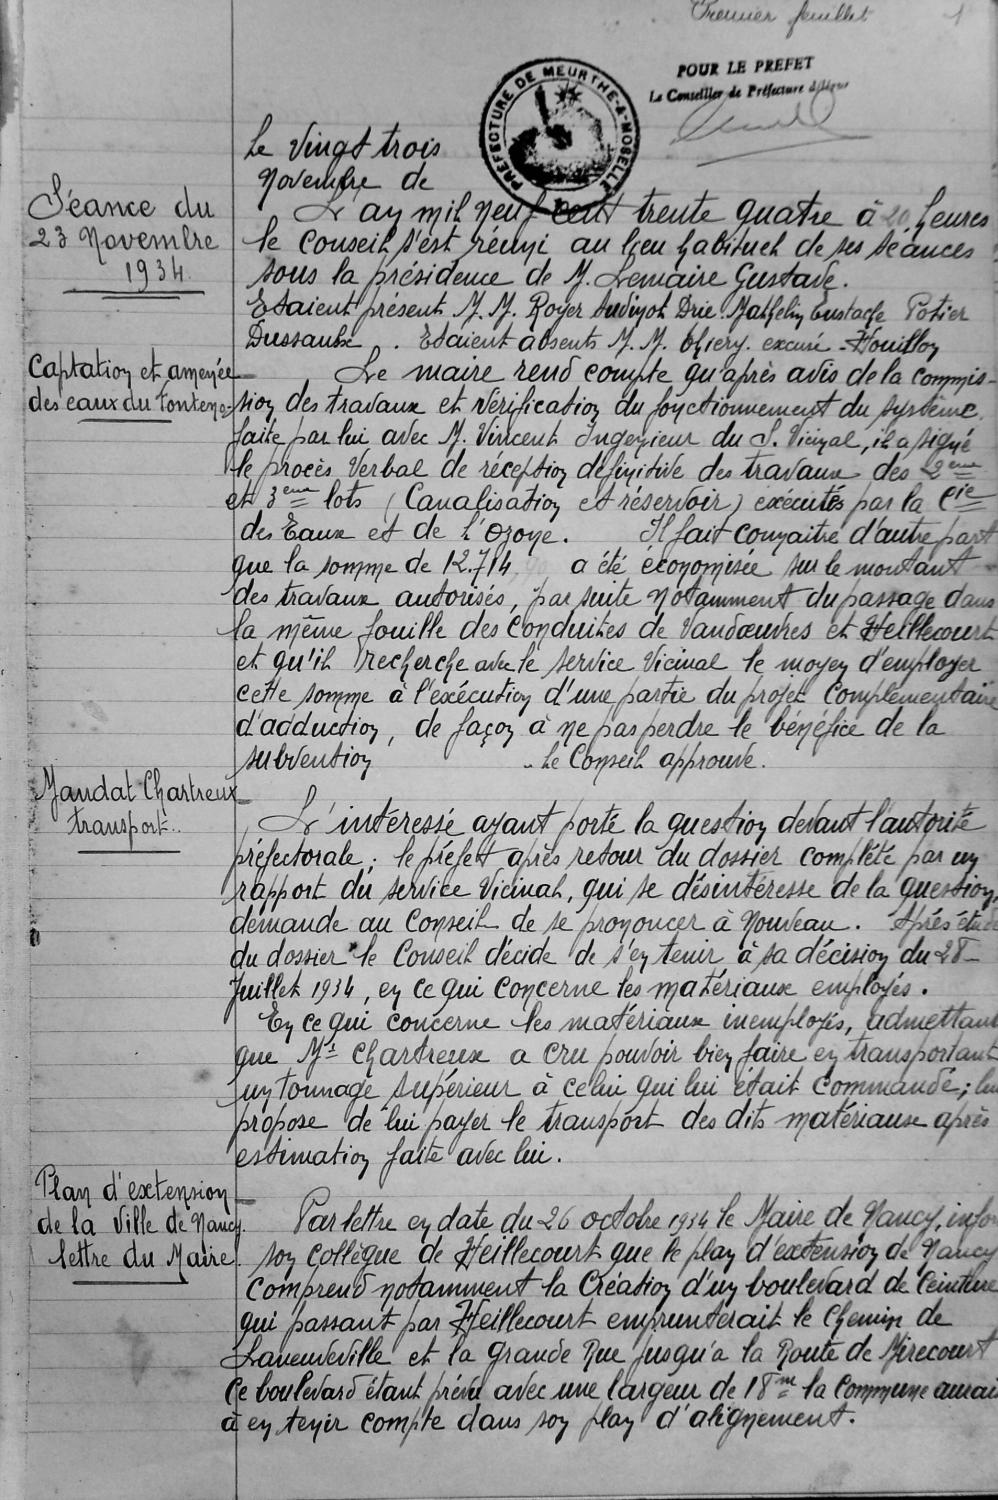 Premier feuillet 1
POUR LE PREFET
Le Conseiller de Préfecture délégué
PREFECTURE DE MEURTHE-&-MOSELLE
Le Vingt trois
Novembre de
Séance du
23 Novembre
1934
L'an mil neuf cent trente quatre à 20 heures
le Conseil s'est réuni au lieu habituel de ses séances
sous la présidence de M. Lemaire Gustave.
Etaient présent M.M. Royer Drie Mathelin Eustache Potier
Dussaulx. Etaient absents M.M. thiery excusé Houillon
Captation et amenée
des eaux du fontenoy
Le maire rend compte qu'après avis de la commis-
sion des travaux et vérification du fonctionnement du système
faite par lui avec M. Vincent Ingénieur du S. Vicinal, il a signé
le procès Verbal de réception définitive des travaux des 2eme
et 3eme lots (Canalisation et réservoir) exécutés par la Cie
des Eaux et de l'Ozone. Il fait connaitre d'autre part
que la somme de 12.714,90 a été économisée sur le montant
des travaux autorisés, par suite notamment du passage dans
la même fouille des Conduites de Vandœuvres et Heillecourt
et qu'il recherche avec le service Vicinal le moyen d'employer
cette somme à l'exécution d'une partie du projet Complémentaire
d'adduction, de façon à ne pas perdre le bénéfice de la
subvention .. Le Conseil approuve.
Mandat Chartreux
transport..
L'intéressé ayant porté la question devant l'autorité
préfectorale; le préfet après retour du dossier complété par un
rapport du service Vicinal, qui se désintéresse de la question,
demande au Conseil de se prononcer à Nouveau. Après étude
du dossier le Conseil décide de s'en tenir à sa décision du 28-
Juillet 1934, en ce qui concerne les matériaux employés.
En ce qui concerne les matériaux inemployés, admettant
que Mr Chartreux a cru pouvoir bien faire en transportant
un tonnage supérieur à celui qui lui était Commandé; lui
propose de lui payer le transport des dits matériaux après
estimation faite avec lui.
Plan d'extension
de la Ville de Nancy
lettre du Maire.
Par lettre en date du 26 octobre 1934 le Maire de Nancy, infor
son collègue de Heillecourt que le plan d'extension de Nancy
Comprend notamment la Création d'un boulevard de Ceinture
qui passant par Heillecourt emprunterait le Chemin de
Laneuveville et la Grande Rue jusqu'a la Route de Mirecourt
Ce boulevard étant prévu avec une largeur de 18m la Commune aurait
à en tenir compte dans son plan d'alignement.